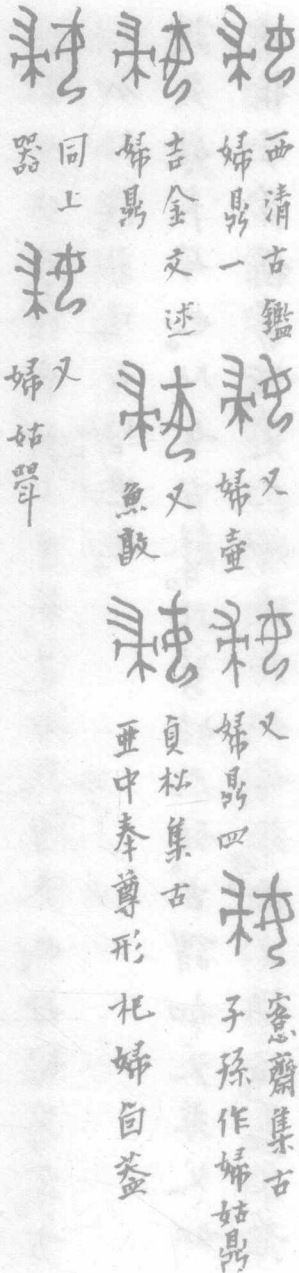 西清古鑑 婦鼎一
又 婦壺
又 婦鼎四
愙齋集古 子孫作婦姑鼎
吉金文述 婦鼎
又 魚敦
貞松集古 亜中奉尊形 杞婦卣蓋
同上 器
又 婦姑斝